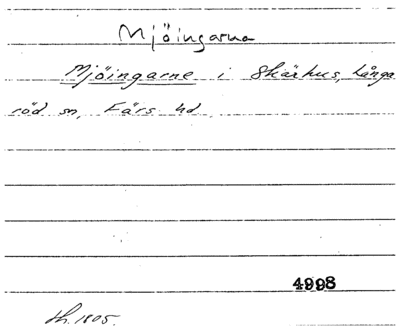 Mjöingarna
Mjöingarne i Skärhus, Långa
röd sn, Färs hd.
4998
sh. 1805.